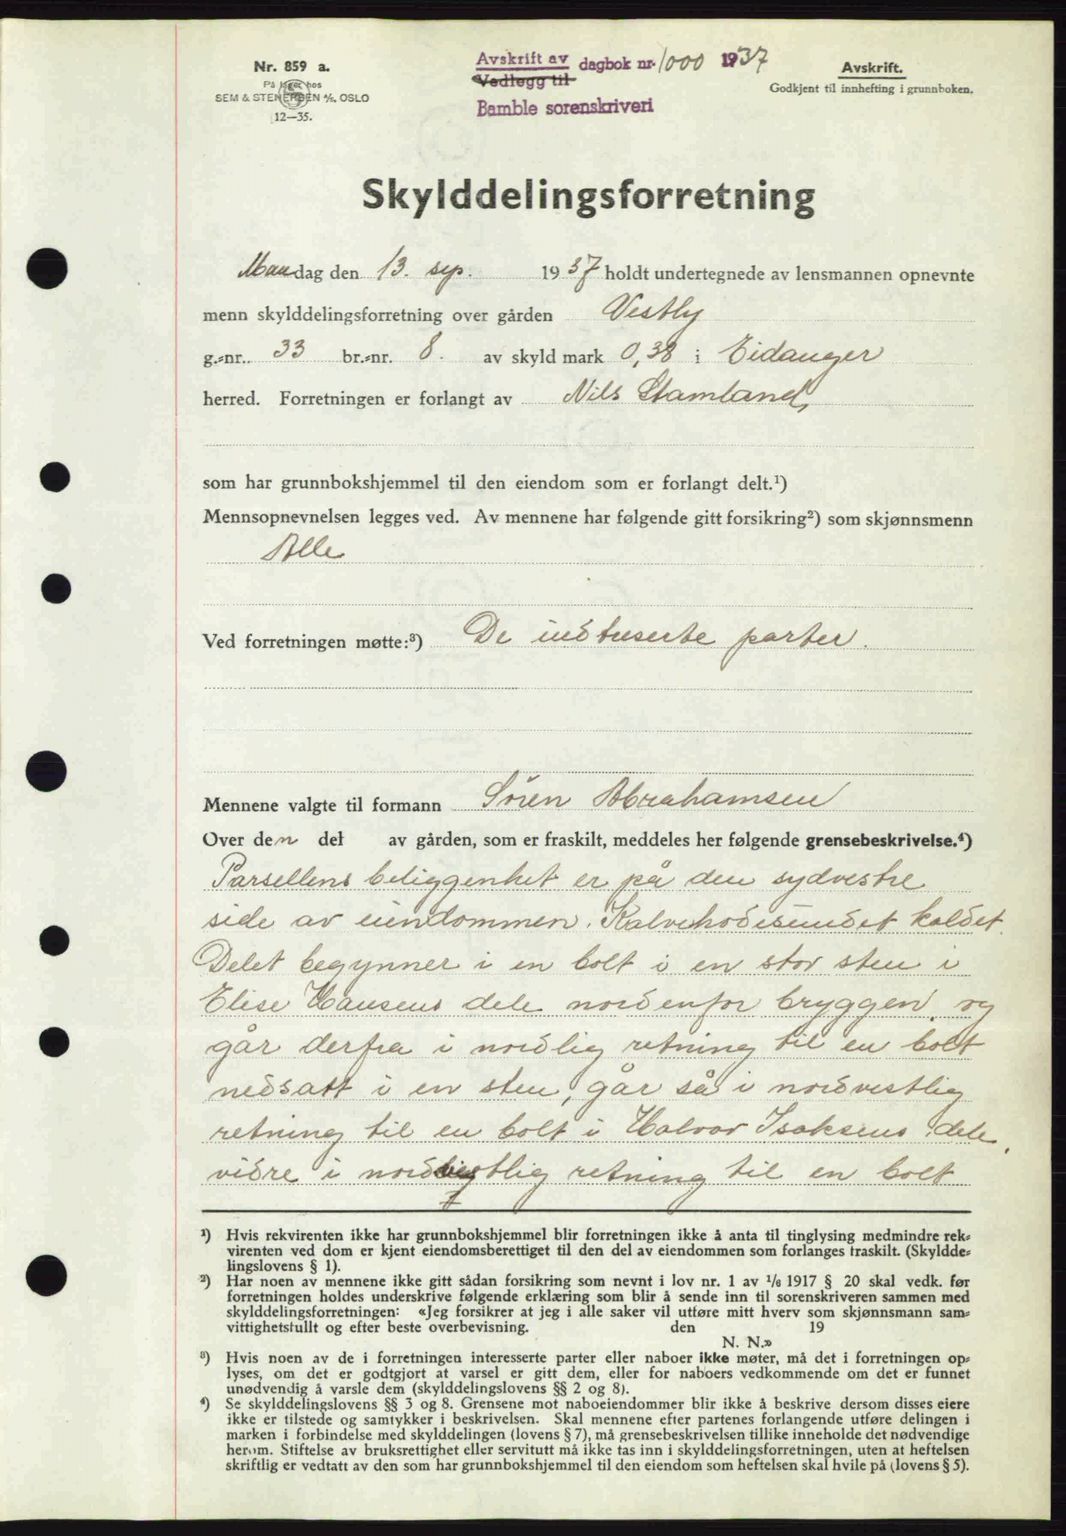 Nr. 859 a.
På lager hos
SEM & STENERSEN A/S. OSLO
12—35.
Avskrift av dagbok nr. 1000 1937
Vedlegg til
Bamble sorenskriveri
Avskrift.
Godkjent til innhefting i grunnboken.
Skylddelingsforretning
Mandag den 13. sep. 1937 holdt undertegnede av lensmannen opnevnte
menn skylddelingsforretning over gården Vestby
g.-nr. 33 br.-nr. 8. av skyld mark 0,38 i Eidanger
herred. Forretningen er forlangt av Nils Stamland,
som har grunnbokshjemmel til den eiendom som er forlangt delt.¹)
Mennsopnevnelsen legges ved. Av mennene har følgende gitt forsikring²) som skjønnsmenn
Alle
Ved forretningen møtte:³) De intreserte parter.
Mennene valgte til formann Sören Abrahamsen
Over den del av gården, som er fraskilt, meddeles her følgende grensebeskrivelse.⁴)
Parsellens beliggenhet er på den sydvestre
side av eiendommen. Kalvehodesundet kaldet.
Delet begynner i en bolt i en stor sten i
Elise Hansens dele nordenfor bryggen, og
går derfra i nordlig retning til en bolt
nedsatt i en sten, går så i nordvestlig
retning til en bolt i Halvor Isaksens dele,
vidre i nordvestlig retning til en bolt
¹) Hvis rekvirenten ikke har grunnbokshjemmel blir forretningen ikke å anta til tinglysing medmindre rek-
virenten ved dom er kjent eiendomsberettiget til den del av eiendommen som forlanges fraskilt. (Skyldde-
lingslovens § 1).
²) Har noen av mennene ikke gitt sådan forsikring som nevnt i lov nr. 1 av 1/6 1917 § 20 skal vedk. før
forretningen holdes underskrive følgende erklæring som blir å sende inn til sorenskriveren sammen med
skylddelingsforretningen: «Jeg forsikrer at jeg i alle saker vil utføre mitt hverv som skjønnsmann sam-
vittighetsfullt og efter beste overbevisning. den 19
N. N.»
³) Hvis noen av de i forretningen interesserte parter eller naboer ikke møter, må det i forretningen op-
lyses, om det er godtgjort at varsel er gitt dem, eller for naboers vedkommende om det er funnet
unødvendig å varsle dem (skylddelingslovens §§ 2 og 8).
⁴) Se skylddelingslovens §§ 3 og 8. Grensene mot naboeiendommer blir ikke å beskrive dersom disses eiere
ikke er tilstede og samtykker i beskrivelsen. Skal mennene efter partenes forlangende utføre delingen i
marken i forbindelse med skylddelingen (lovens § 7), må grensebeskrivelsen tillike inneholde det nødvendige
herom. Stiftelse av bruksrettighet eller servitutt må ikke tas inn i skylddelingsforretningen, uten at heftelsen
skriftlig er vedtatt av den som har grunnbokshjemmel til den eiendom som heftelsen skal hvile på (lovens § 5).